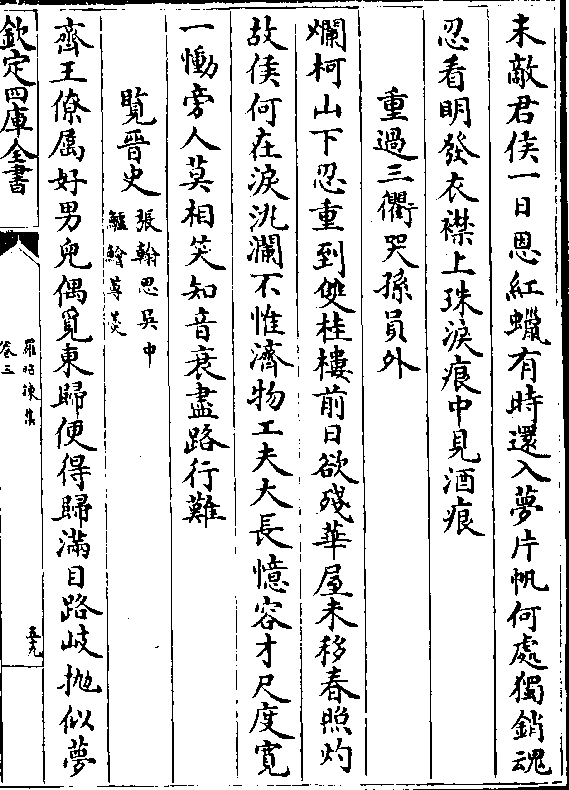 未敵君侯一日恩紅蠟有時還入夢片帆何處獨銷魂
忍看明發衣襟上珠淚痕中見酒痕
重過三衢哭孫員外
爛柯山下忍重到雙桂樓前日欲殘華屋未移春照灼
故侯何在淚汍瀾不惟濟物工夫大長憶容才尺度寛
一慟旁人莫相笑知音衰盡路行難
覧晉史
張翰思吳中
鱸鱠蓴羮
齊王僚屬好男兒偶覓東歸便得歸滿目路岐抛似夢
欽定四庫全書
羅昭諫集
卷三